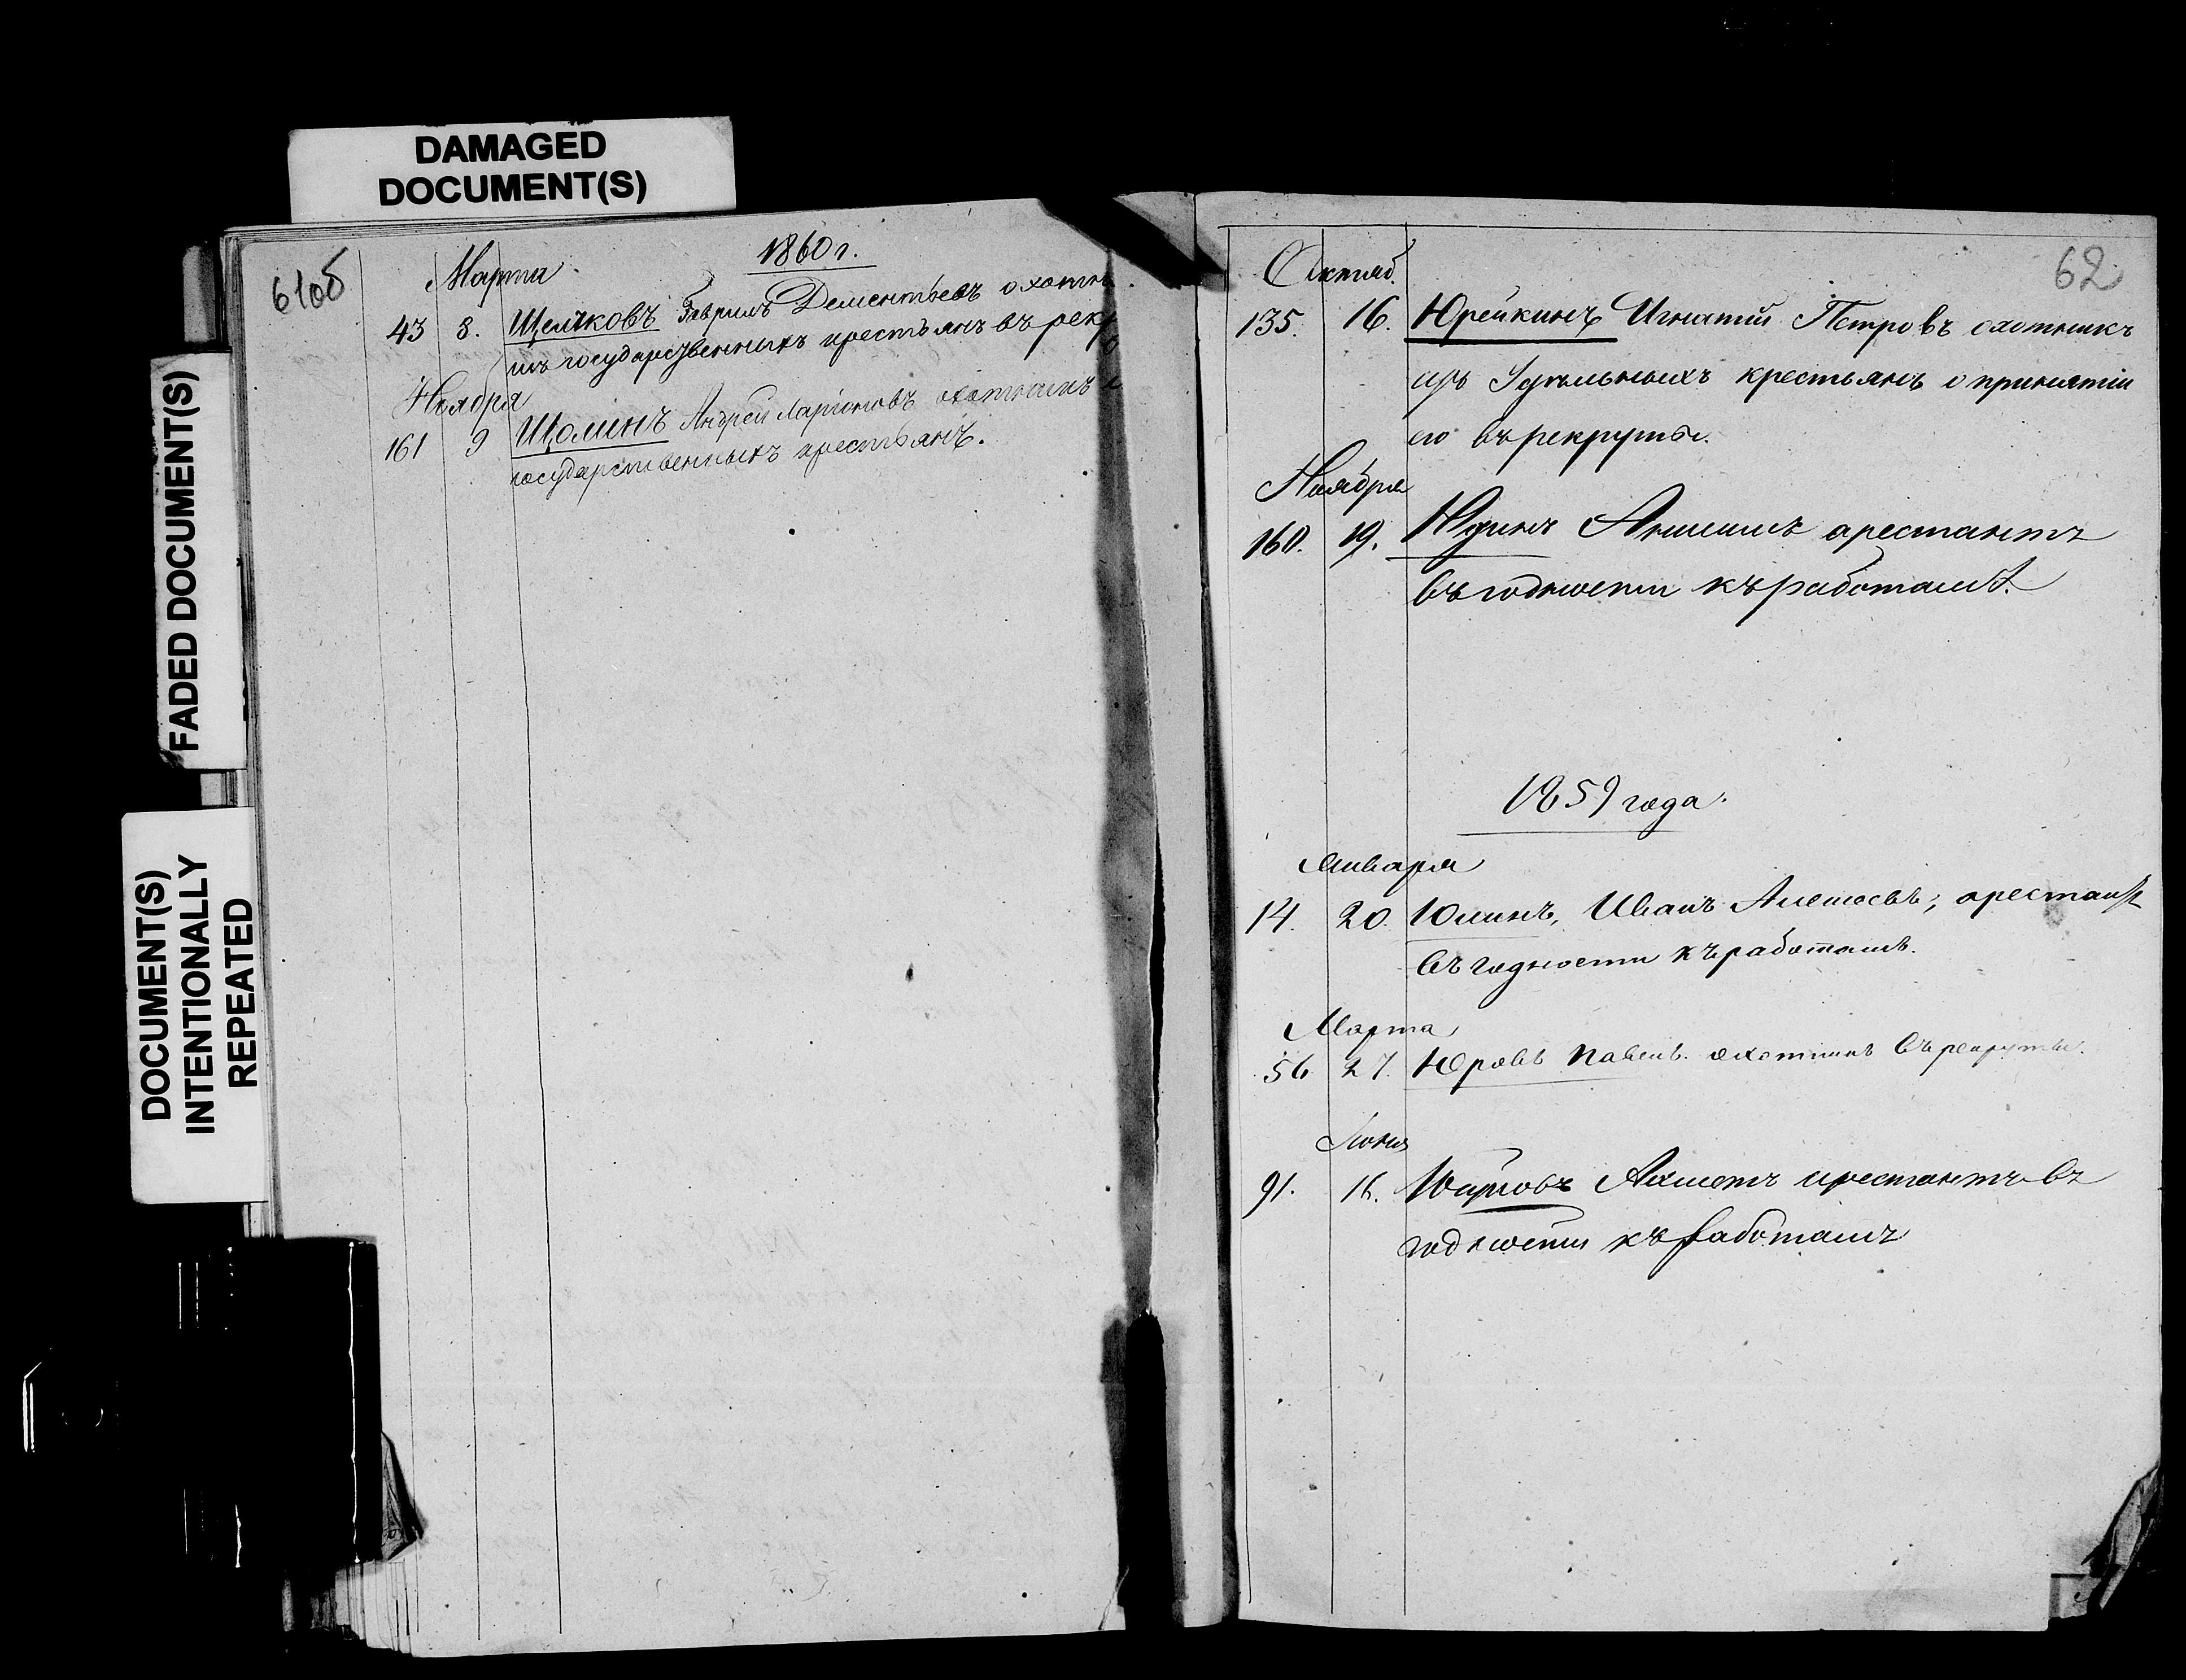 DAMAGED
DOCUMENT(S)
FADED DOCUMENT(S)
DOCUMENT(S)
INTENTIONALLY
REPEATED
61об
1860 г.
Марта
43 8. Щелчковъ Гаврилъ Дементьевъ охотн
изъ государственныхъ крестьянъ въ рекр
Ноября
161 9 Щоминъ Андрей Ларіоновъ охотникъ
государственныхъ крестьянъ.
62
Октяб.
135. 16. Юрейкинъ Игнатій Петровъ охотникъ
изъ Удѣльныхъ крестьянъ о принятіи
его въ рекруты.
Ноября
160. 19. Юдинъ Анисимъ арестантъ
въ годности къ работамъ.
1859 года.
Января
14. 20. Юминъ, Иванъ арестантъ
въ годности къ работамъ.
Марта
56 27. Юровъ Павелъ. охотникъ въ рекруты.
Іюня
91. 16. Ахметъ арестантъ въ
годности къ работамъ